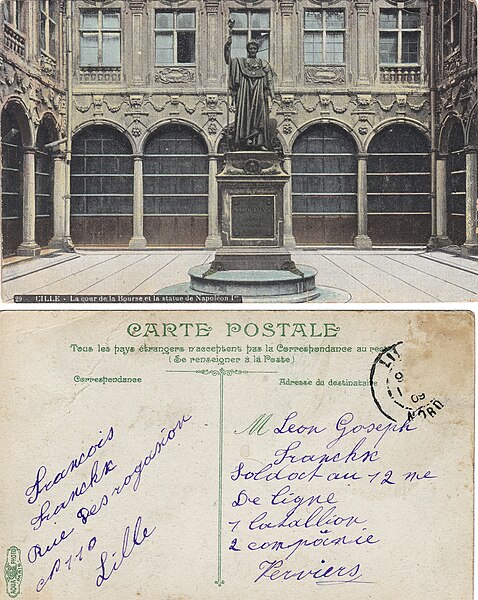 29 - LILLE - La cour de la Bourse et la statue de Napoléon Ier
CARTE POSTALE
Tous les pays étrangers n'acceptent pas la Correspondance au recto
(Se renseigner à la Poste)
Correspondance
Adresse du destinataire
LIL
9
1
09
NORD
Francois
Franchk
Rue Des rogasion
N 110
Lille
M Leon Goseph
Franchk
Soldoct au 12 me
De ligne
1 batallion
2 compänie
Verviers